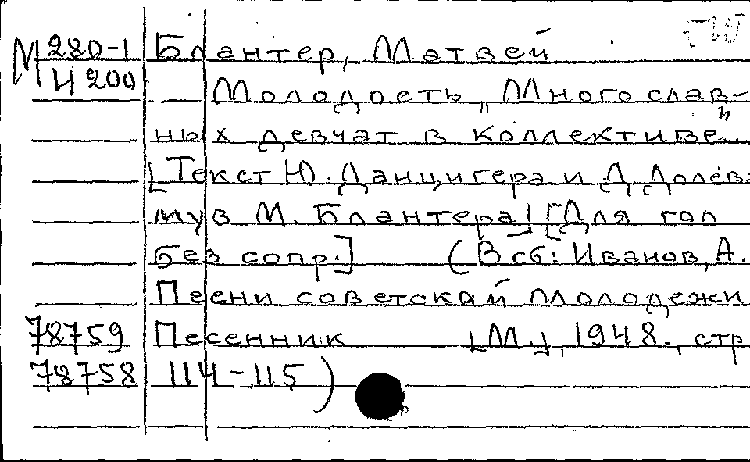 М 280-1 Блантер, Матвей
Ч 200 Молодость „Много слав-
ных девчат в коллективе"
[Текст Ю. Данцигера и Д. Долев.
муз М. Блантера] [Для гол
без сопр.] (В сб: Иванов, А.
Песни советской молодежи
78759 Песенник [М.], 1948., стр
78758 114-115)